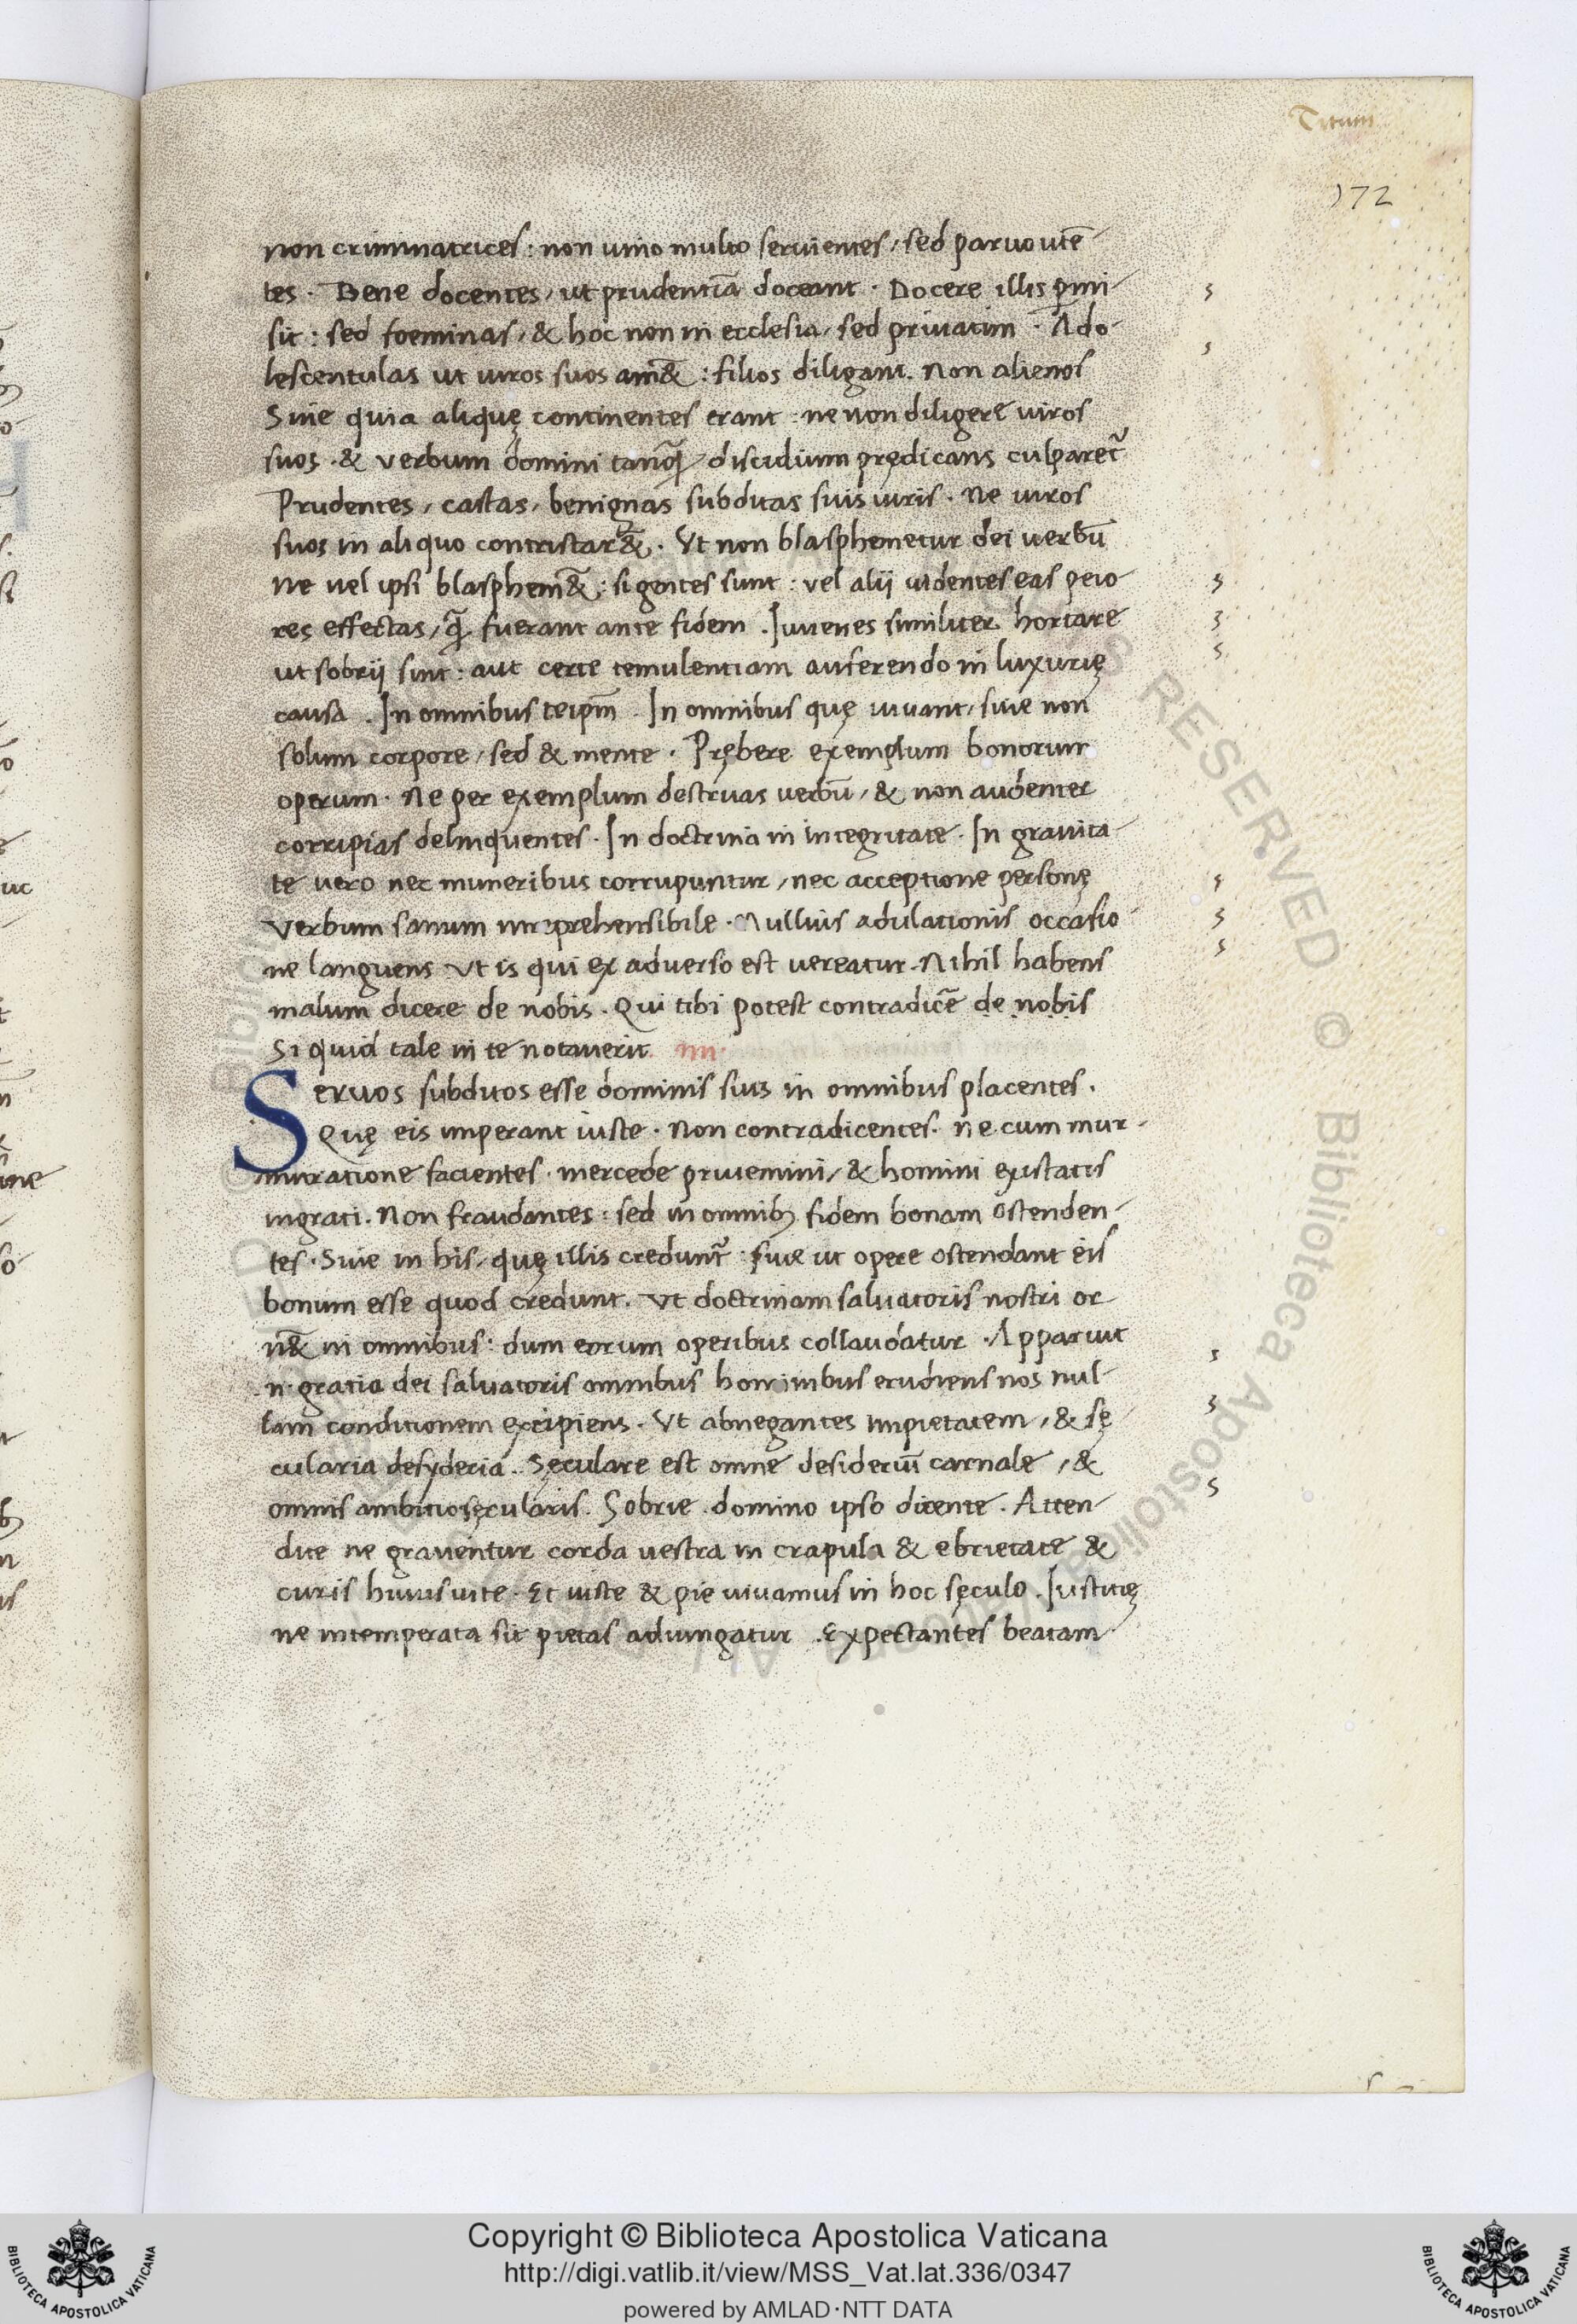 Titum
172
non criminatrices: non uino multo seruientes, sed paruo utē-
tes. Bene docentes, ut prudentiā doceant. Docere illis ꝑmi-
sit: sed foeminas, & hoc non in ecclesia, sed priuatim. Ado-
lescentulas ut uiros suos am&: filios diligant. Non alienos
Siue quia aliquę continentes erant: ne non diligerē uiros
suos. & verbum domini tanq̄ discidium prędicans culparet᷑
Prudentes, castas, benignas subditas suis uiris. Ne uiros
suos in aliquo contristar&. Vt non blasphemetur dei uerbū
Ne uel ipsi blasphem&: si gentes sunt: vel alii uidentes eas peio
res effectas, q̄ fuerant ante fidem. Iuuenes similiter hortare
ut sobrii sint: aut certe temulentiam auferendo in luxurię
causa. In omnibus teipm̄. In omnibus quę uiuant, siue non
solum corpore, sed & mente. Prębere exemplum bonorum
operum. Ne per exemplum destruas verbū, & non audenter
corripias delinquentes. In doctrina in integritate. In grauita-
te uero nec muneribus corrupuntur, nec acceptione personę
Verbum sanum irreprehensibile. Nullius adulationis occasio-
ne languens Vt is qui ex aduerso est uereatur. Nihil habens
malum dicere de nobis. Qui tibi potest contradicē de nobis
Si quid tale in te notauerit. IIII.
Seruos subditos esse dominis suis in omnibus placentes.
Quę eis imperant iuste. Non contradicentes. ne cum mur-
muratione facientes. mercede priuemini, & homini existatis
ingrati. Non fraudantes: sed in omnib; fidem bonam ostenden-
tes. Siue in his, quę illis credunt᷑: siue ut opere ostendant eis
bonum esse quod credunt. Vt doctrinam saluatoris nostri or
n& in omnibus: dum eorum operibus collaudatur. Apparuit
.n. gratia dei saluatoris omnibus hominibus erudiens nos nul-
lam conditionem excipiens. Vt abnegantes impietatem, & sę
cularia desyderia. Sęculare est omne desideriū carnale, &
omnis ambitio sęcularis. Sobrie. domino ipso dicente. Atten-
dite ne grauentur corda uestra in crapula & ebrietate &
curis huius uite. Et iuste & pie uiuamus in hoc sęculo. Iustitię
ne intemperata sit pietas adiungatur. Expectantes beatam
Copyright © Biblioteca Apostolica Vaticana
http://digi.vatlib.it/view/MSS_Vat.lat.336/0347
powered by AMLAD·NTT DATA
BIBLIOTECA APOSTOLICA VATICANA
BIBLIOTECA APOSTOLICA VATICANA